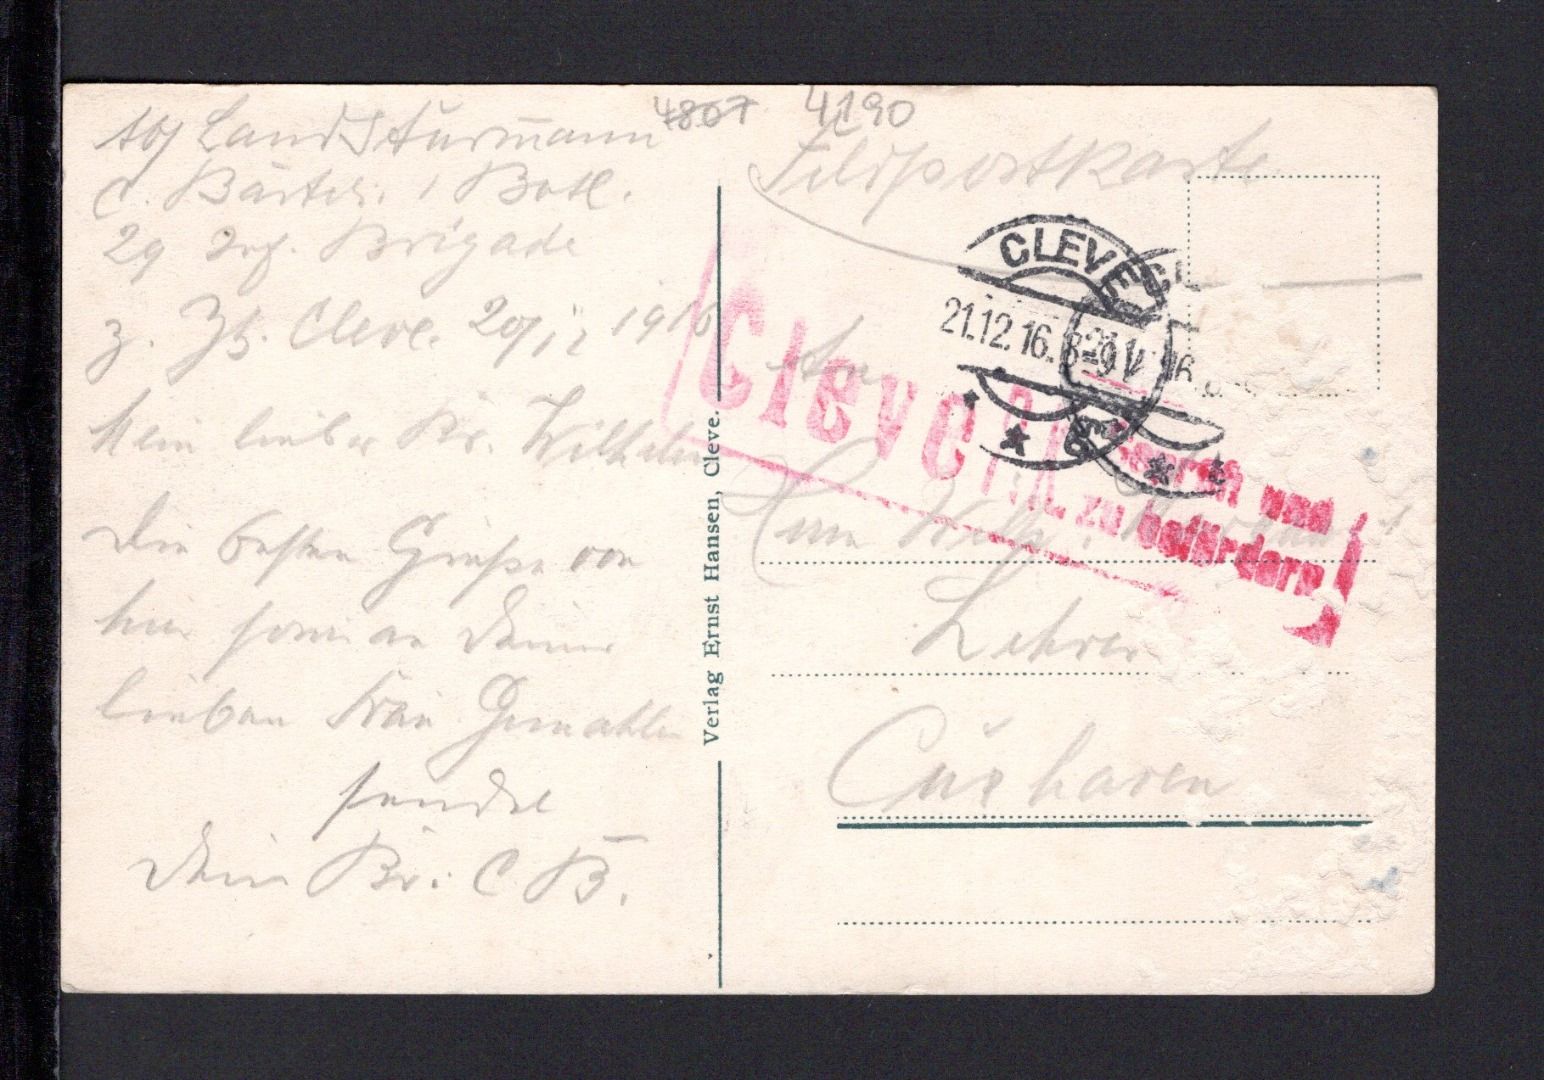 4807 4190
Abs Landsturmann
C. Bartels. 1 Batl.
29 Inf. Brigade
z. Zt. Cleve. 20/12 1916
Mein lieber Br. Wilhelm
Die besten Grüße von
hier sowie an Deine
lieben Frau Gemahlin
sendet
Dein Br. C B.
Verlag Ernst Hansen, Cleve.
Feldpostkarte
CLEVE
21.12.16. 8-9V
Cleve
und
zu befördern!
An
Herrn Wilh.
Lehrer
Cuxhaven